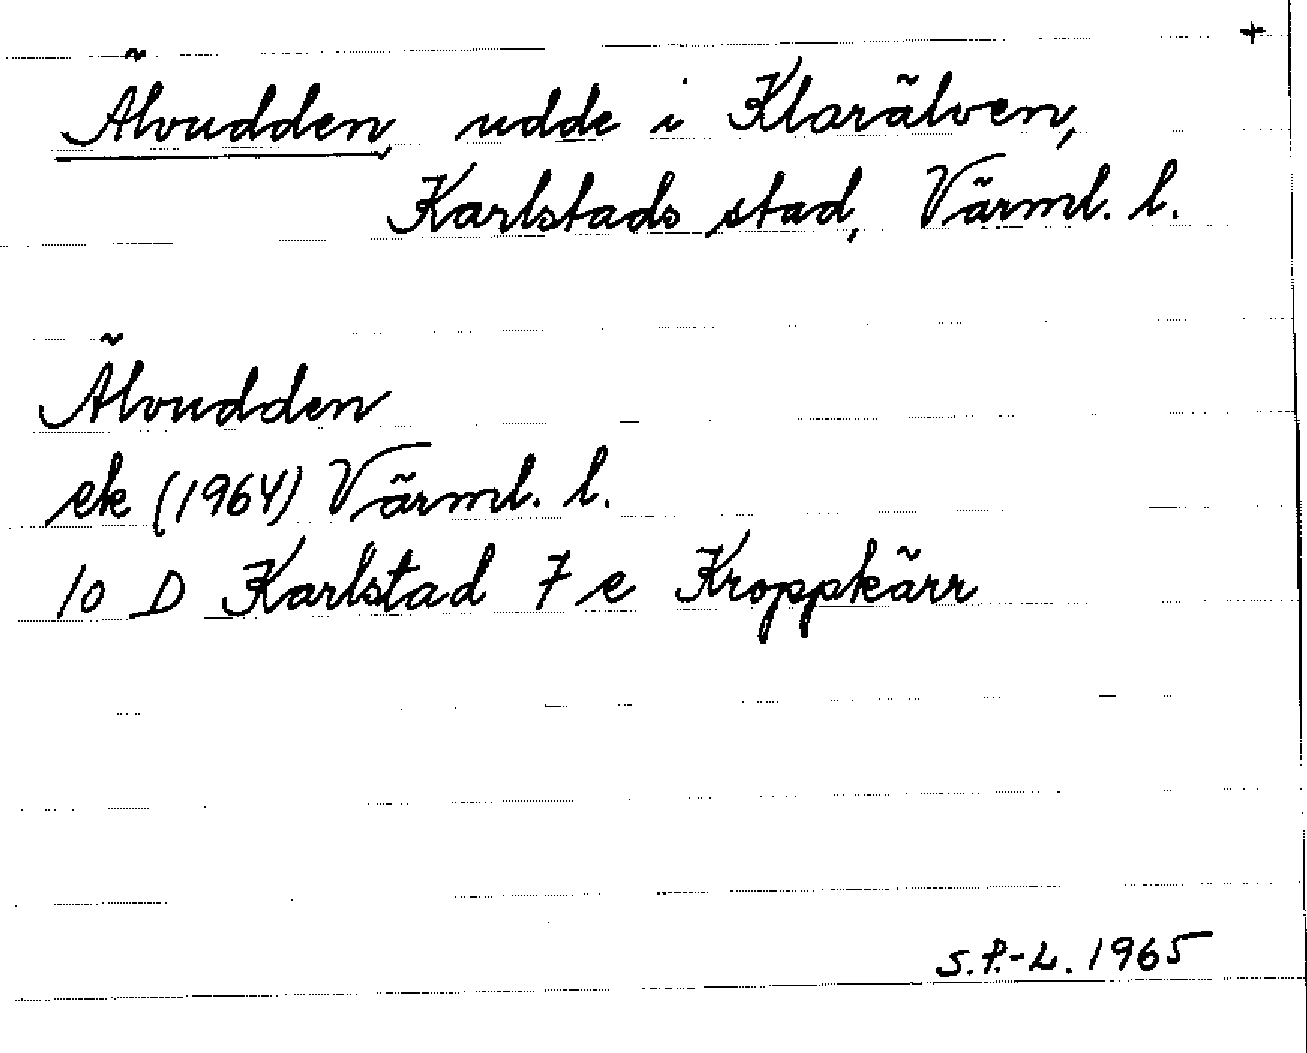 +
Älvudden, udde i Klarälven,
Karlstads stad, Värml. l.
Älvudden
ek (1964) Värml. l.
10 D Karlstad 7 e Kroppkärr
S.P.-L. 1965